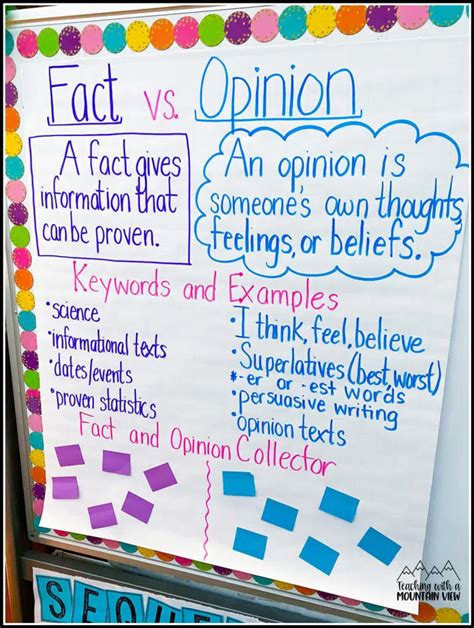 Fact vs. Opinion
A fact gives
information that
can be proven.
An opinion is
someone's own thoughts,
feelings, or beliefs.
Keywords and Examples
•science
•informational texts
•dates/events
•proven statistics
•I think, feel, believe
•Superlatives (best, worst)
*-er or -est words
•persuasive writing
•opinion texts
Fact and Opinion Collector
SEQUE
Teaching with a
MOUNTAIN VIEW